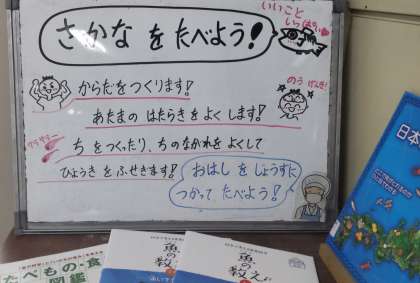 さかな を たべよう!
いいこと
いっぱい
からだをつくります!
のう げんき!
あたまの はたらきを よく します!
サラサラ
ち を つくったり、ちの ながれ を よくして
びょうき を ふせぎます!
おはし を じょうずに
つかって たべよう!
日本
たべもの・食
図鑑
魚の
教え
魚の
教え